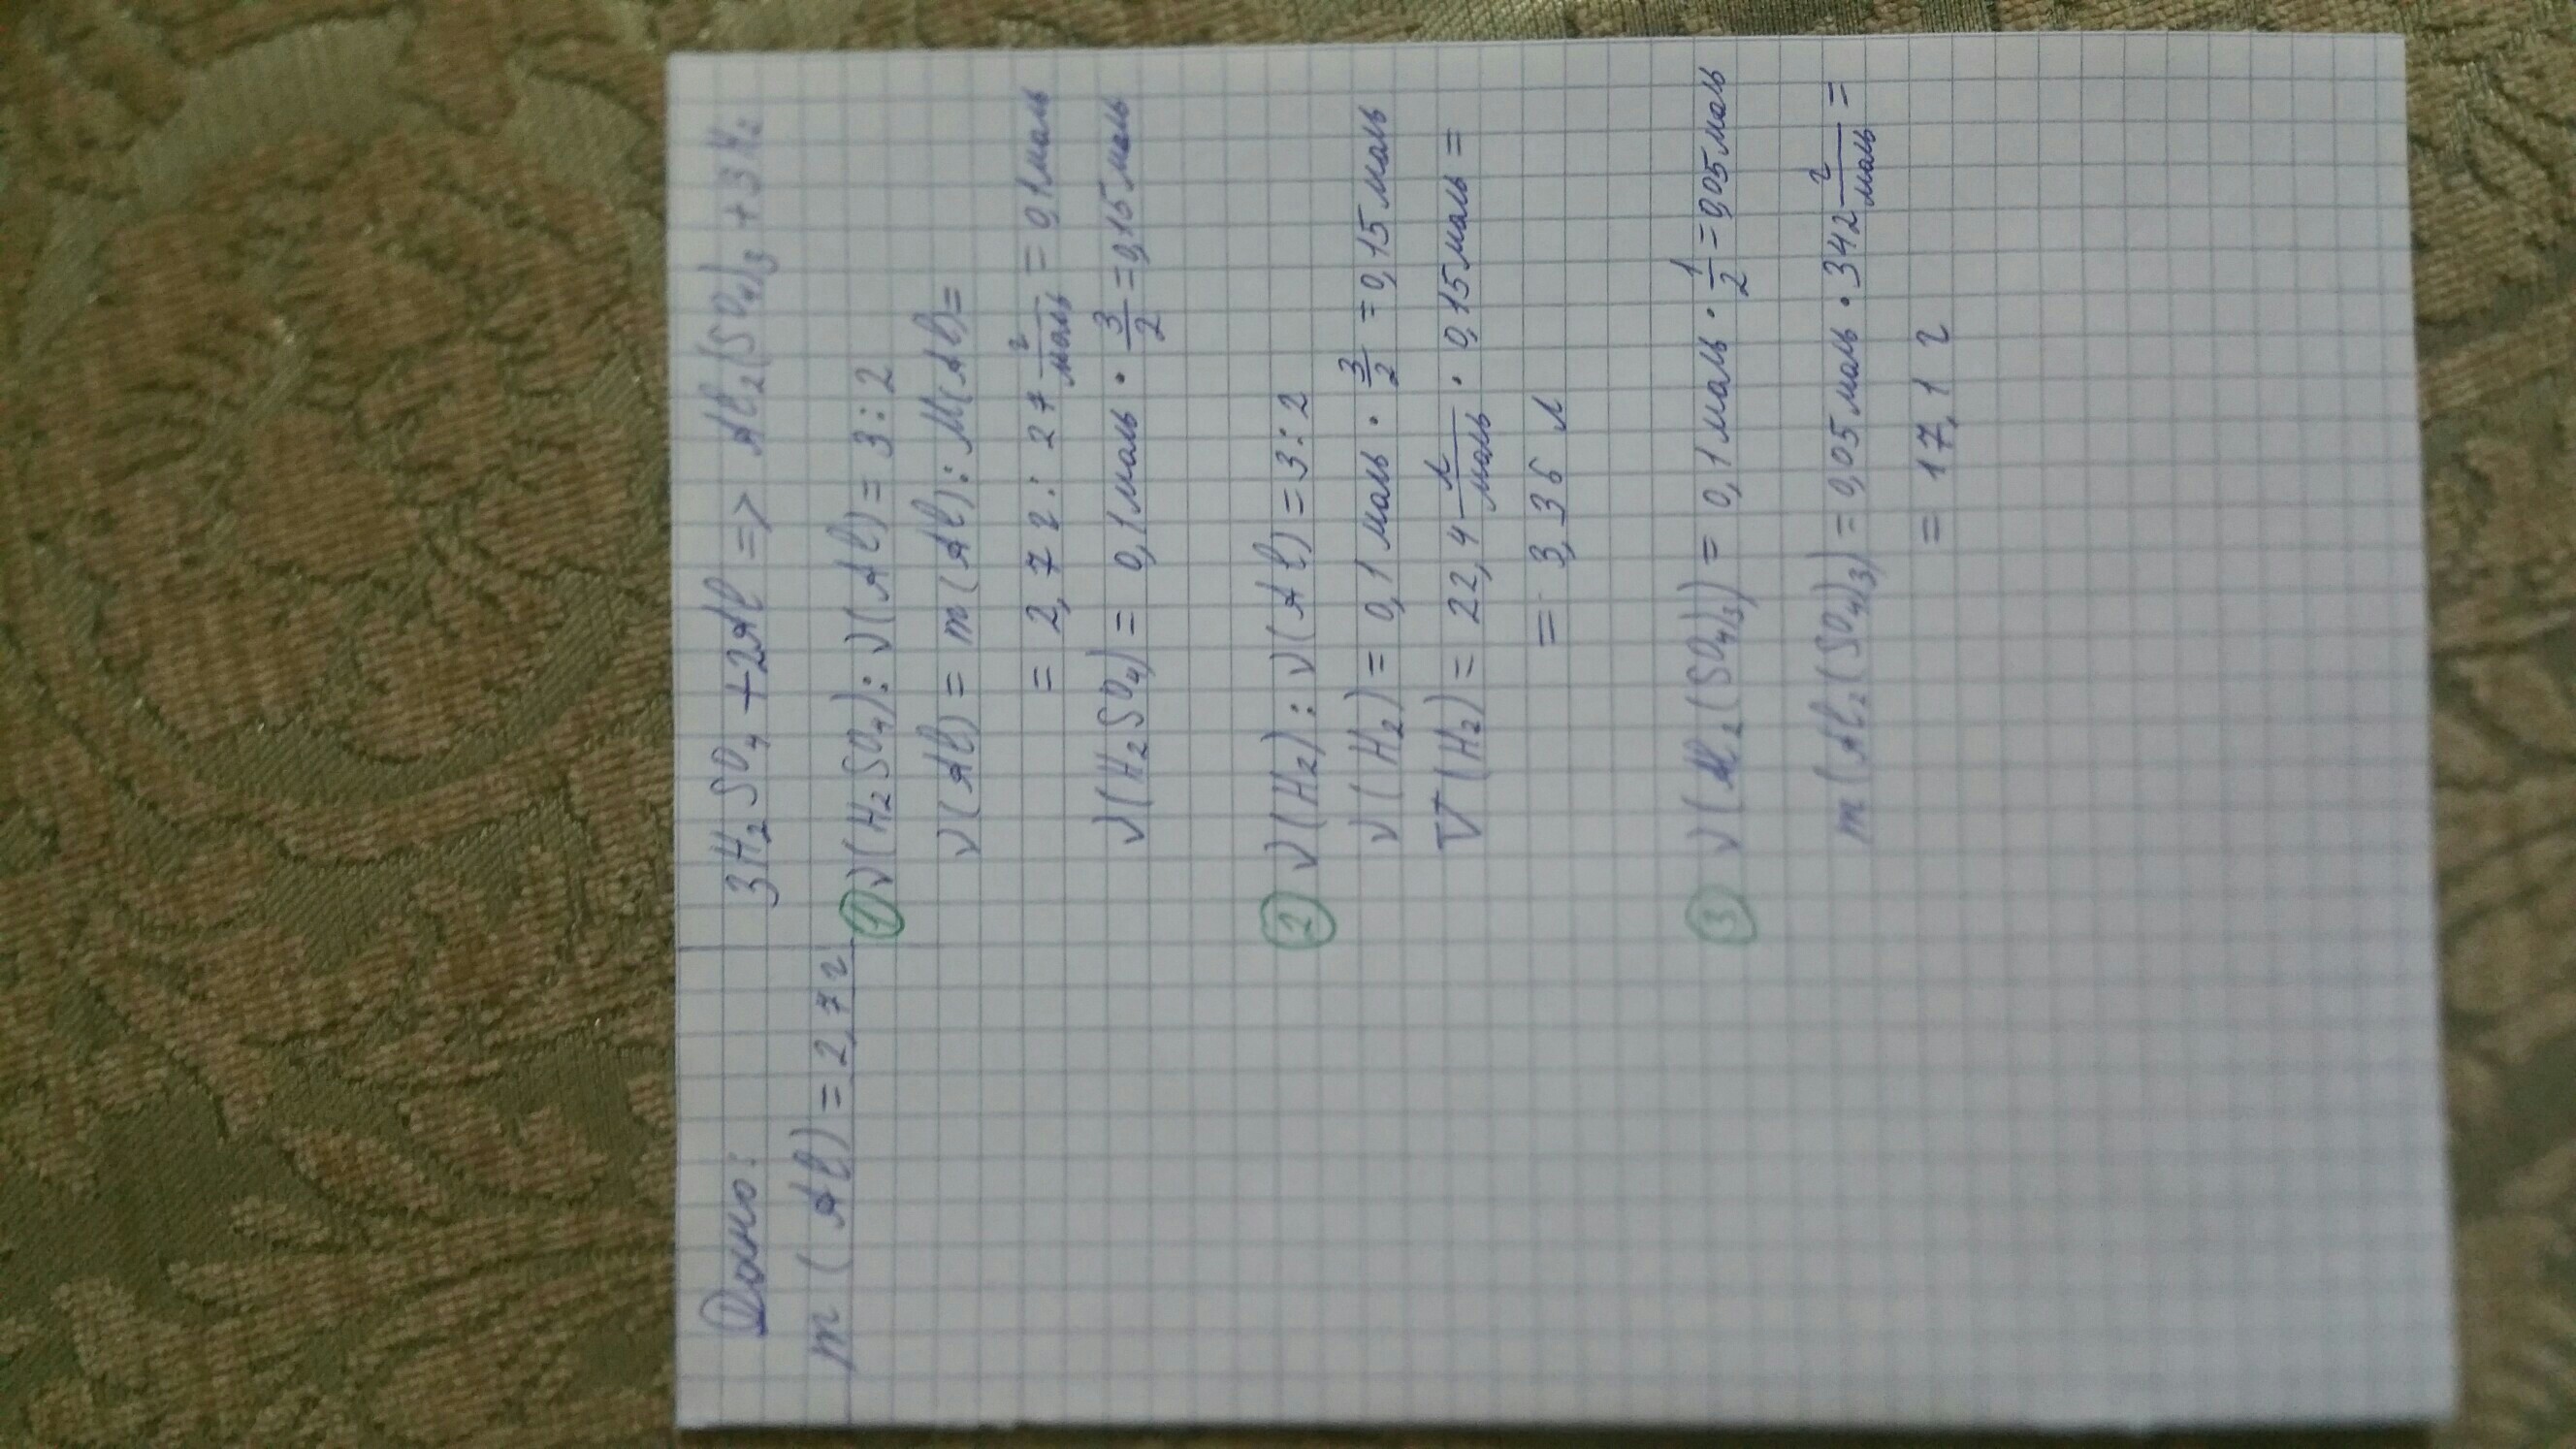 Дано:
m (Al) = 2,7 г
3H₂SO₄ + 2Al => Al₂(SO₄)₃ + 3H₂
① ν(H₂SO₄) : ν(Al) = 3 : 2
ν(Al) = m(Al) : M(Al) =
= 2,7 г : 27 г/моль = 0,1 моль
ν(H₂SO₄) = 0,1 моль · 3/2 = 0,15 моль
② ν(H₂) : ν(Al) = 3 : 2
ν(H₂) = 0,1 моль · 3/2 = 0,15 моль
V(H₂) = 22,4 л/моль · 0,15 моль =
= 3,36 л
③ ν(Al₂(SO₄)₃) = 0,1 моль · 1/2 = 0,05 моль
m(Al₂(SO₄)₃) = 0,05 моль · 342 г/моль =
= 17,1 г